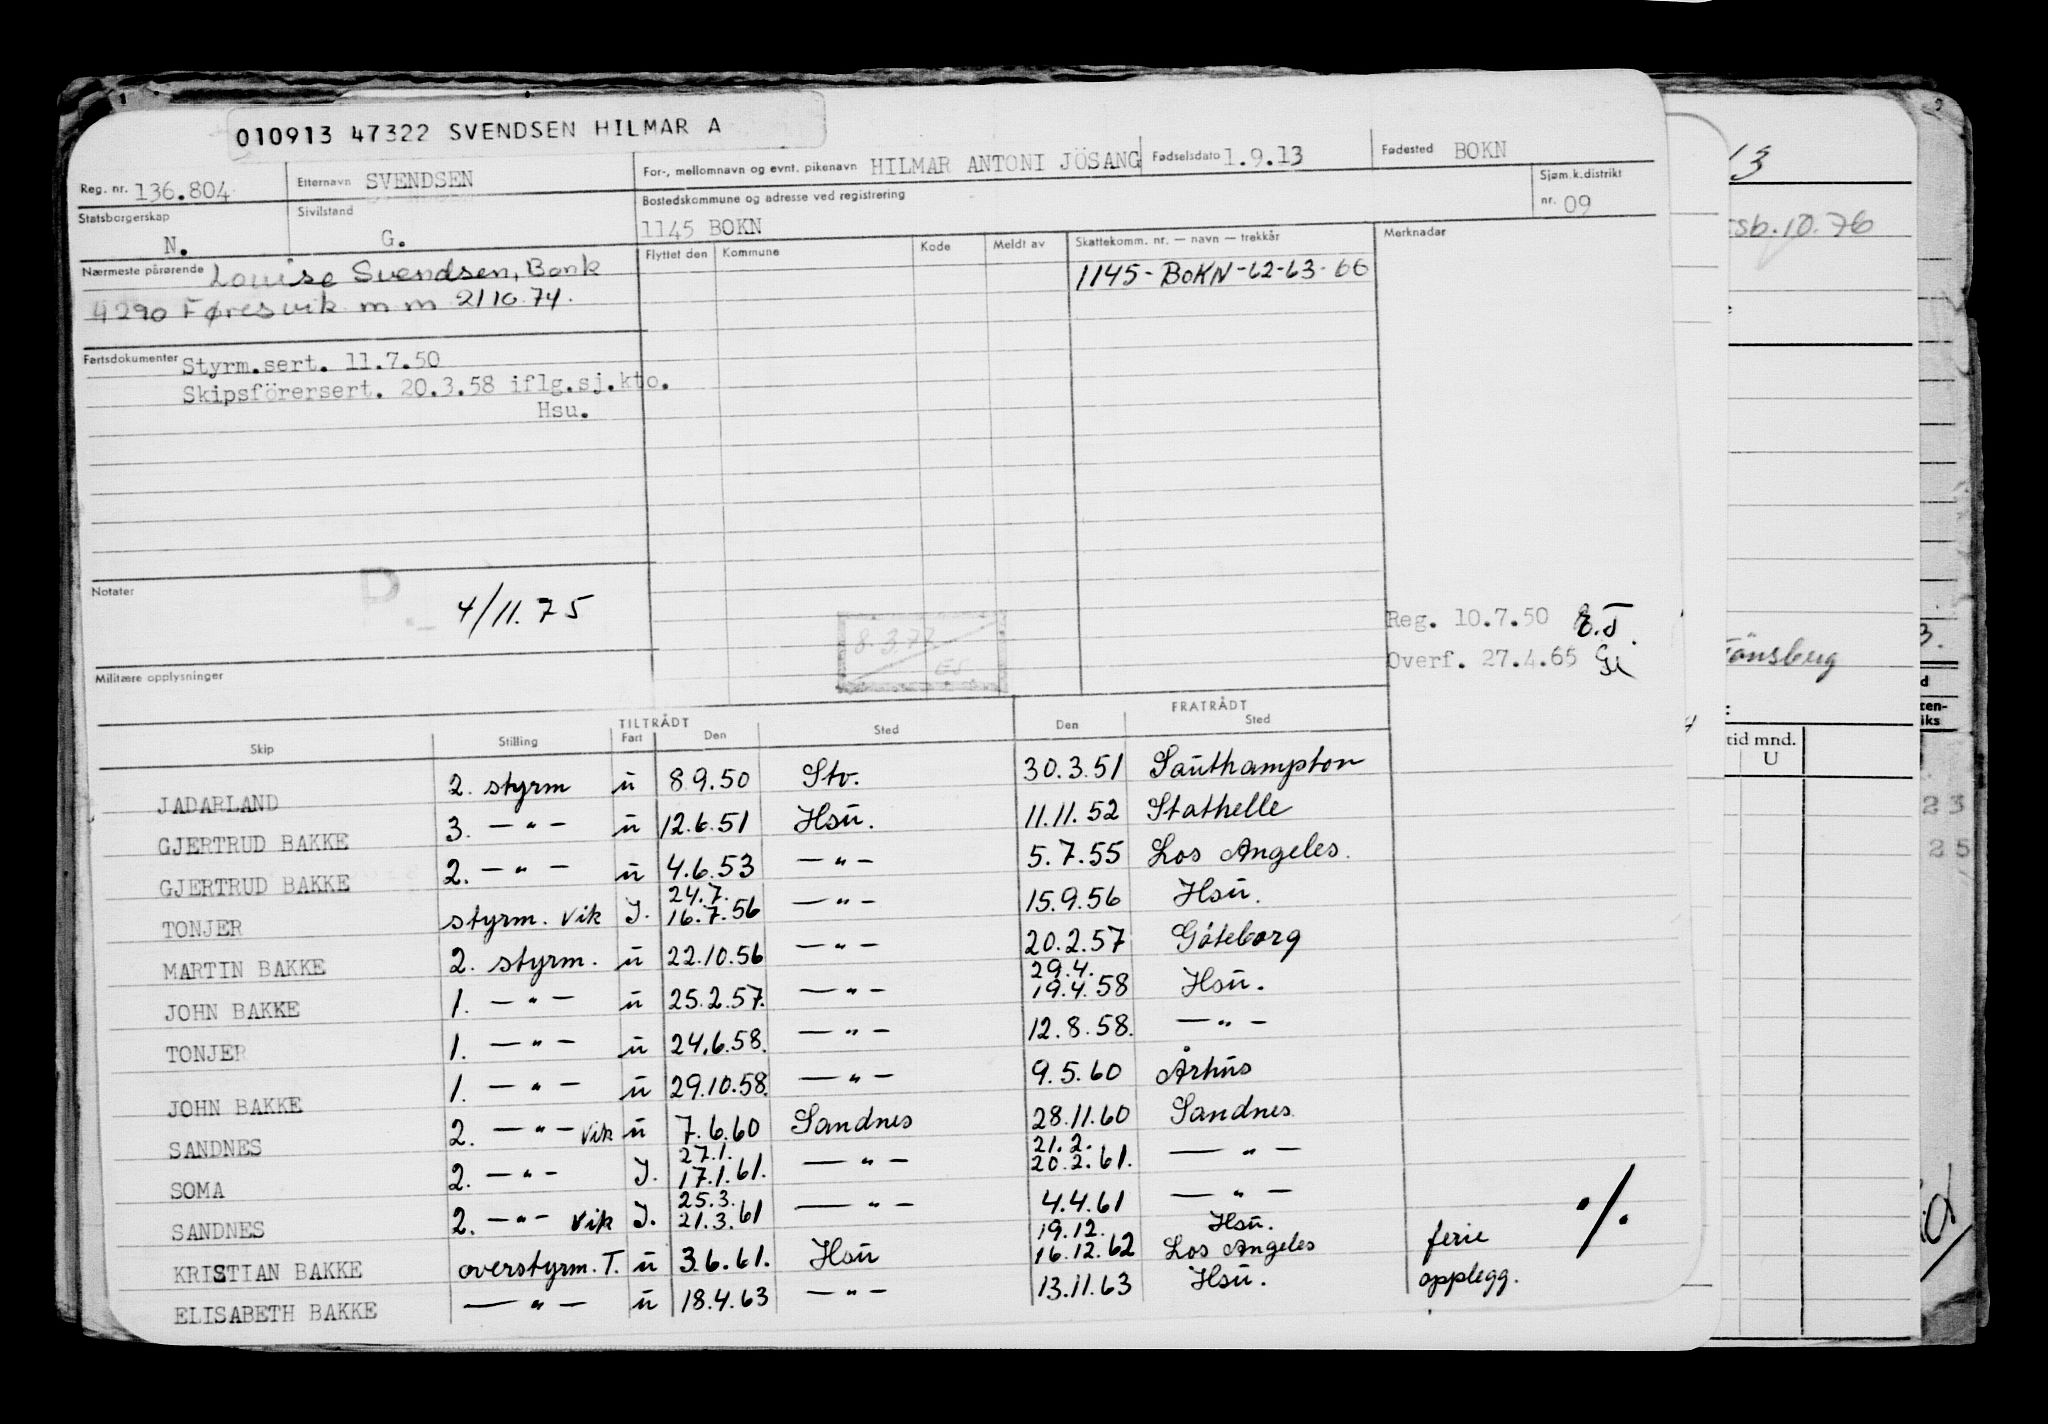 010913 47322 SVENDSEN HILMAR A
Reg. nr. 136.804 Etternavn SVENDSEN For-, mellomnavn og evnt. pikenavn HILMAR ANTONI JÖSANG Fødselsdato 1.9.13 Fødested BOKN
Statsborgerskap N. Sivilstand G. Bostedskommune og adresse ved registrering 1145 BOKN Sjøm.k.distrikt nr. 09
Nærmeste pårørende Louise Svendsen, Bonk
4290 Føresvik m m 21 10 74.
Flyttet den Kommune Kode Meldt av Skattekomm. nr. — navn — trekkår Merknader
1145- BOKN -62-63-66
Fartsdokumenter Styrm.sert. 11.7.50
Skipsförersert. 20.3.58 iflg.sj.kto.
Hsu.
Notater
D.
4/11.75
8.3.77
Reg. 10.7.50 E.T.
Overf. 27.4.65 Gi
Militære opplysninger
TILTRÅDT FRATRÅDT
Skip Stilling Fart Den Sted Den Sted
JADARLAND 2. styrm u 8.9.50 Stv. 30.3.51 Southampton
GJERTRUD BAKKE 3. — " — u 12.6.51 Hsu. 11.11.52 Stathelle
GJERTRUD BAKKE 2. — " — u 4.6.53 — " — 5.7.55 Los Angeles.
TONJER styrm. vik J. 24.7. 16.7.56 — " — 15.9.56 Hsu.
MARTIN BAKKE 2. styrm. u 22.10.56 — " — 20.2.57 Göteborg
JOHN BAKKE 1. — " — u 25.2.57. — " — 29.4. 19.4.58 Hsu.
TONJER 1. — " — u 24.6.58. — " — 12.8.58. — " —
JOHN BAKKE 1. — " — u 29.10.58. — " — 9.5.60 Århus
SANDNES 2. — " — vik u 7.6.60 Sandnes 28.11.60 Sandnes
SOMA 2. — " — J. 27.1. 17.1.61. — " — 21.2. 20.2.61. — " —
SANDNES 2. — " — vik J. 25.3. 21.3.61 — " — 4.4.61 — " —
KRISTIAN BAKKE overstyrm. T. u 3.6.61. Hsu 19.12. 16.12.62 Hsu. Los Angeles ferie
ELISABETH BAKKE — " — u 18.4.63 — " — 13.11.63 Hsu. opplegg.
./.
13
sb. 10.76
Tönsberg
tid mnd.
U
3.
d
ten-
iks
23
25